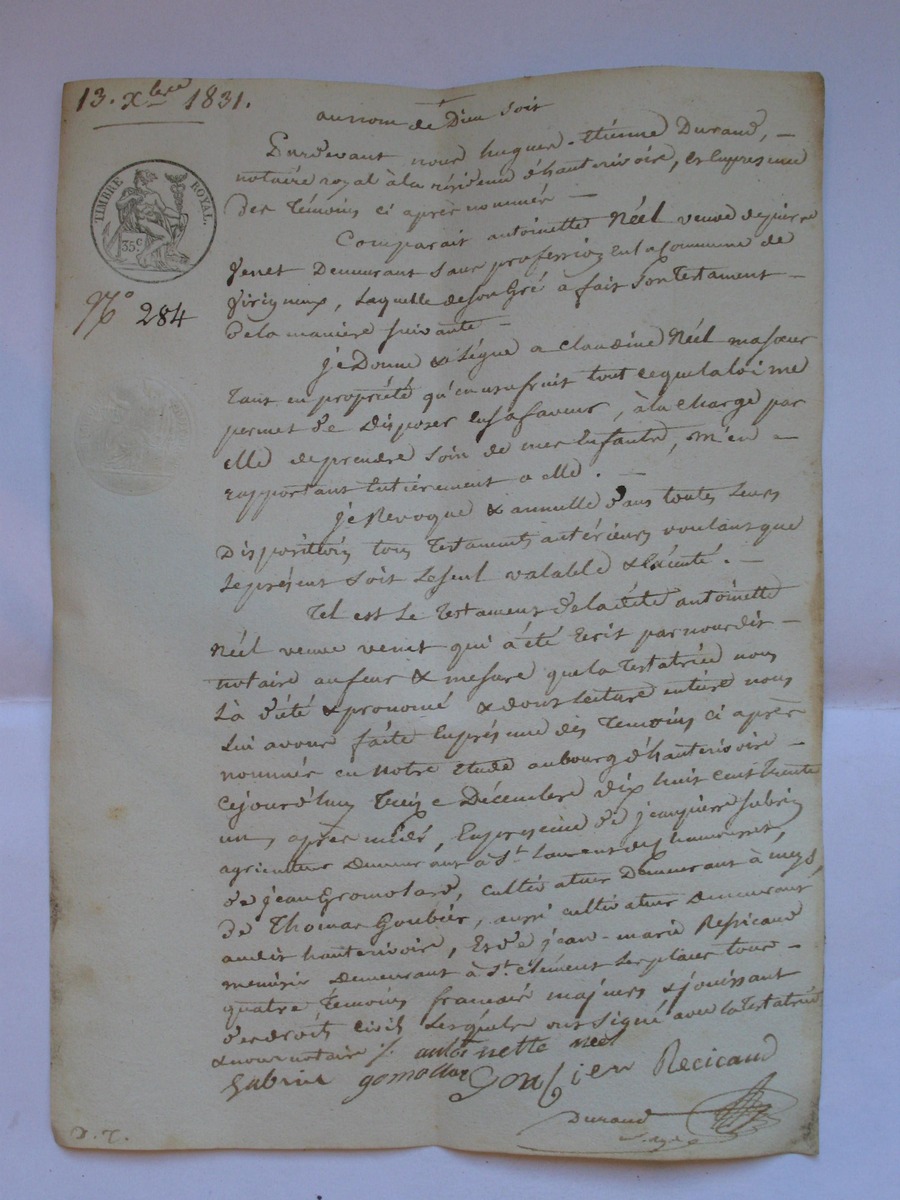 13. Xbre 1831.
au nom de Dieu soit
Pardevant nous hugues-Etiénne Durand, —
notaire royal à la résidence d'hauterivoire, En présence
des témoins ci après nommés —
TIMBRE ROYAL.
35c
Comparait antoinette Néél veuve de pierre
Venet Demeurant sans profession En la Commune de
Virigneux, laquelle de son Gré à fait son testament —
N° 284
de la maniere suivante —
je Donne & Légue a Claudine Néél ma sœur
tant en propriété qu'en usufruit tout ce que la loi me
permet de disposer En sa faveur, à la charge par
elle de prendre soin de mes Enfants, m'en —
rapportant Entiérement a elle. —
je Revoque & annulle dans toutes leurs
Dispositions tous testaments antérieurs voulant que
le présent soit le seul valable & Exécuté. —
Tel est le testament de la dite antoinette
Néél veuve venet qui à été Ecrit par nous dit —
notaire au fur & mesure que la testatrice nous
l'à dicté & prononcé & dont lecture entiére nous
lui avons faite En présence des témoins ci après
nommés en notre Etude au bourg d'hauterivoire —
Cejourd'huy treize Décembre dix huit cent trente
un après midi, En présence de jean pierre
agriculteur demeurant à St. Laurent de chamousset,
de jean Gromolard, cultivateur Demeurant à meys,
de Thomas Goubier, aussi cultivateur demeurant
audit hauterivoire, Et de jean-marie Ressicaud
menusier demeurant à St. Clément les places tous —
quatre témoins français majeurs & jouissant
des droits civils lesquels ont signé avec la testatrice
& nous notaire ./. antoinette neel
gomollar Goubier Recicaud
Durand
D. T.